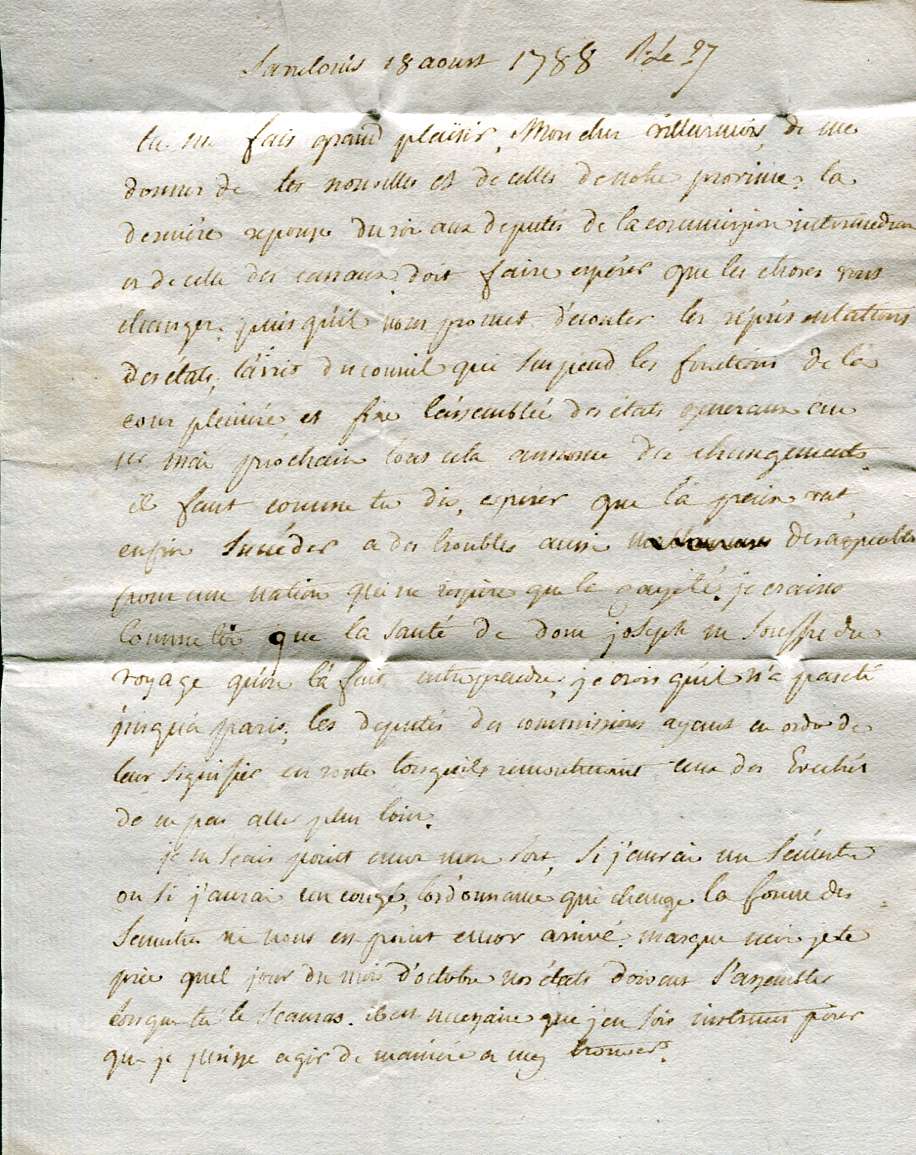 Sarrelouis 18 aoust 1788 R. le 27
tu me fais grand plaisir, Mon cher de me
donner de tes nouvelles et de celles de notre province. la
derniere reponse du roi aux deputés de la commission intermediaire
et de celle des canaux doit faire espérer que les choses vont
changer. puis qu'il nous promet d'écouter les réprésentations
des états, l'arret du conseil qui suspend les fonctions de la
cour pleiniere et fixe l'assemblée des états generaux au
1er mai prochain tous cela annonce des changements
il faut comme tu dis, esperer que la paix vat
enfin succéder a des troubles aussi desagreables
pour une nation qui ne respire que la gayeté. je crains
comme toi que la santé de dom joseph ne souffre du
voyage qu'on la fait entreprendre, je crois qu'il n'a pas été
jusqua paris, les deputés des commissions ayant eu ordre de
leur signifier en route lorsqu'ils rencontreroient ceux des Evechés
de ne pas aller plus loin.
je ne scais point encor mon sort, si j'aurai un semestre
ou si j'aurai un congé, l'ordonnance qui change la forme des
semestres ne nous est point encor arrivé. marque moi je te
prie quel jour du mois d'octobre nos états doivent s'assembler
lorsque tu le scauras. il est necessaire que j'en sois instruit pour
que je puisse agir de maniere a m'y trouver.